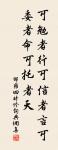 可勉者行可信者言可
委者命可托者天